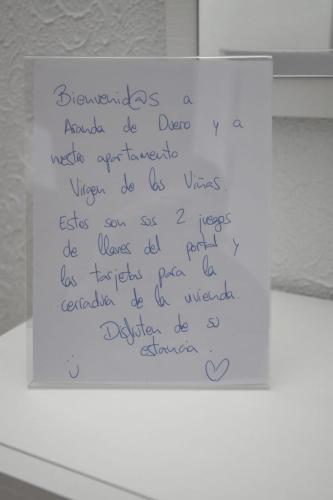 Bienvenid@s a
Aranda de Duero y a
nuestro apartamento
Virgen de las Viñas.
Estos son sus 2 juegos
de llaves del portal y
las tarjetas para la
cerradura de la vivienda.
Disfruten de su
estancia.